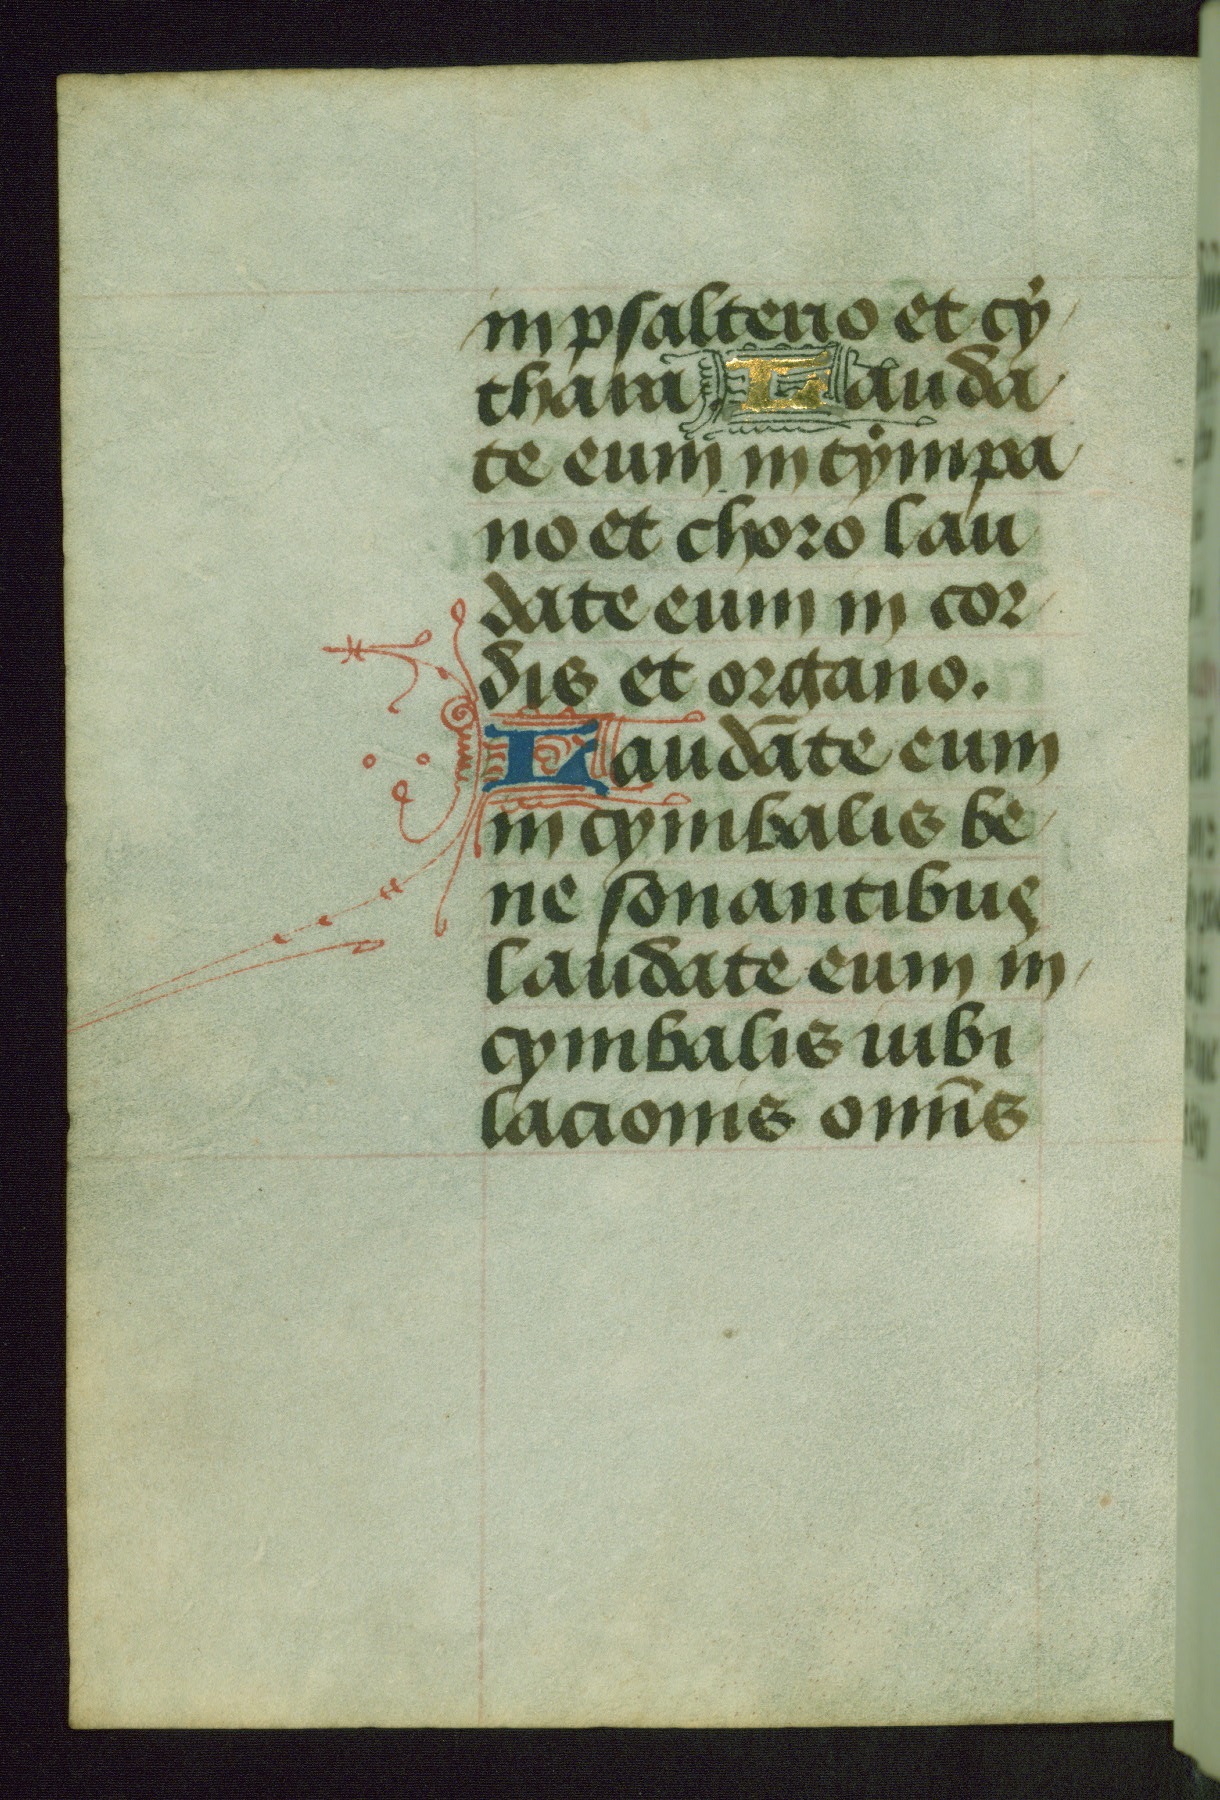 in psalterio et cÿ
thara. Lauda
te eum in tÿmpa
no et choro lau
date eum in cor
dis et organo.
Laudāte eum
in cymbalis be
ne sonantibus
laudate eum in
cymbalis iubi
lacionis omn̄s